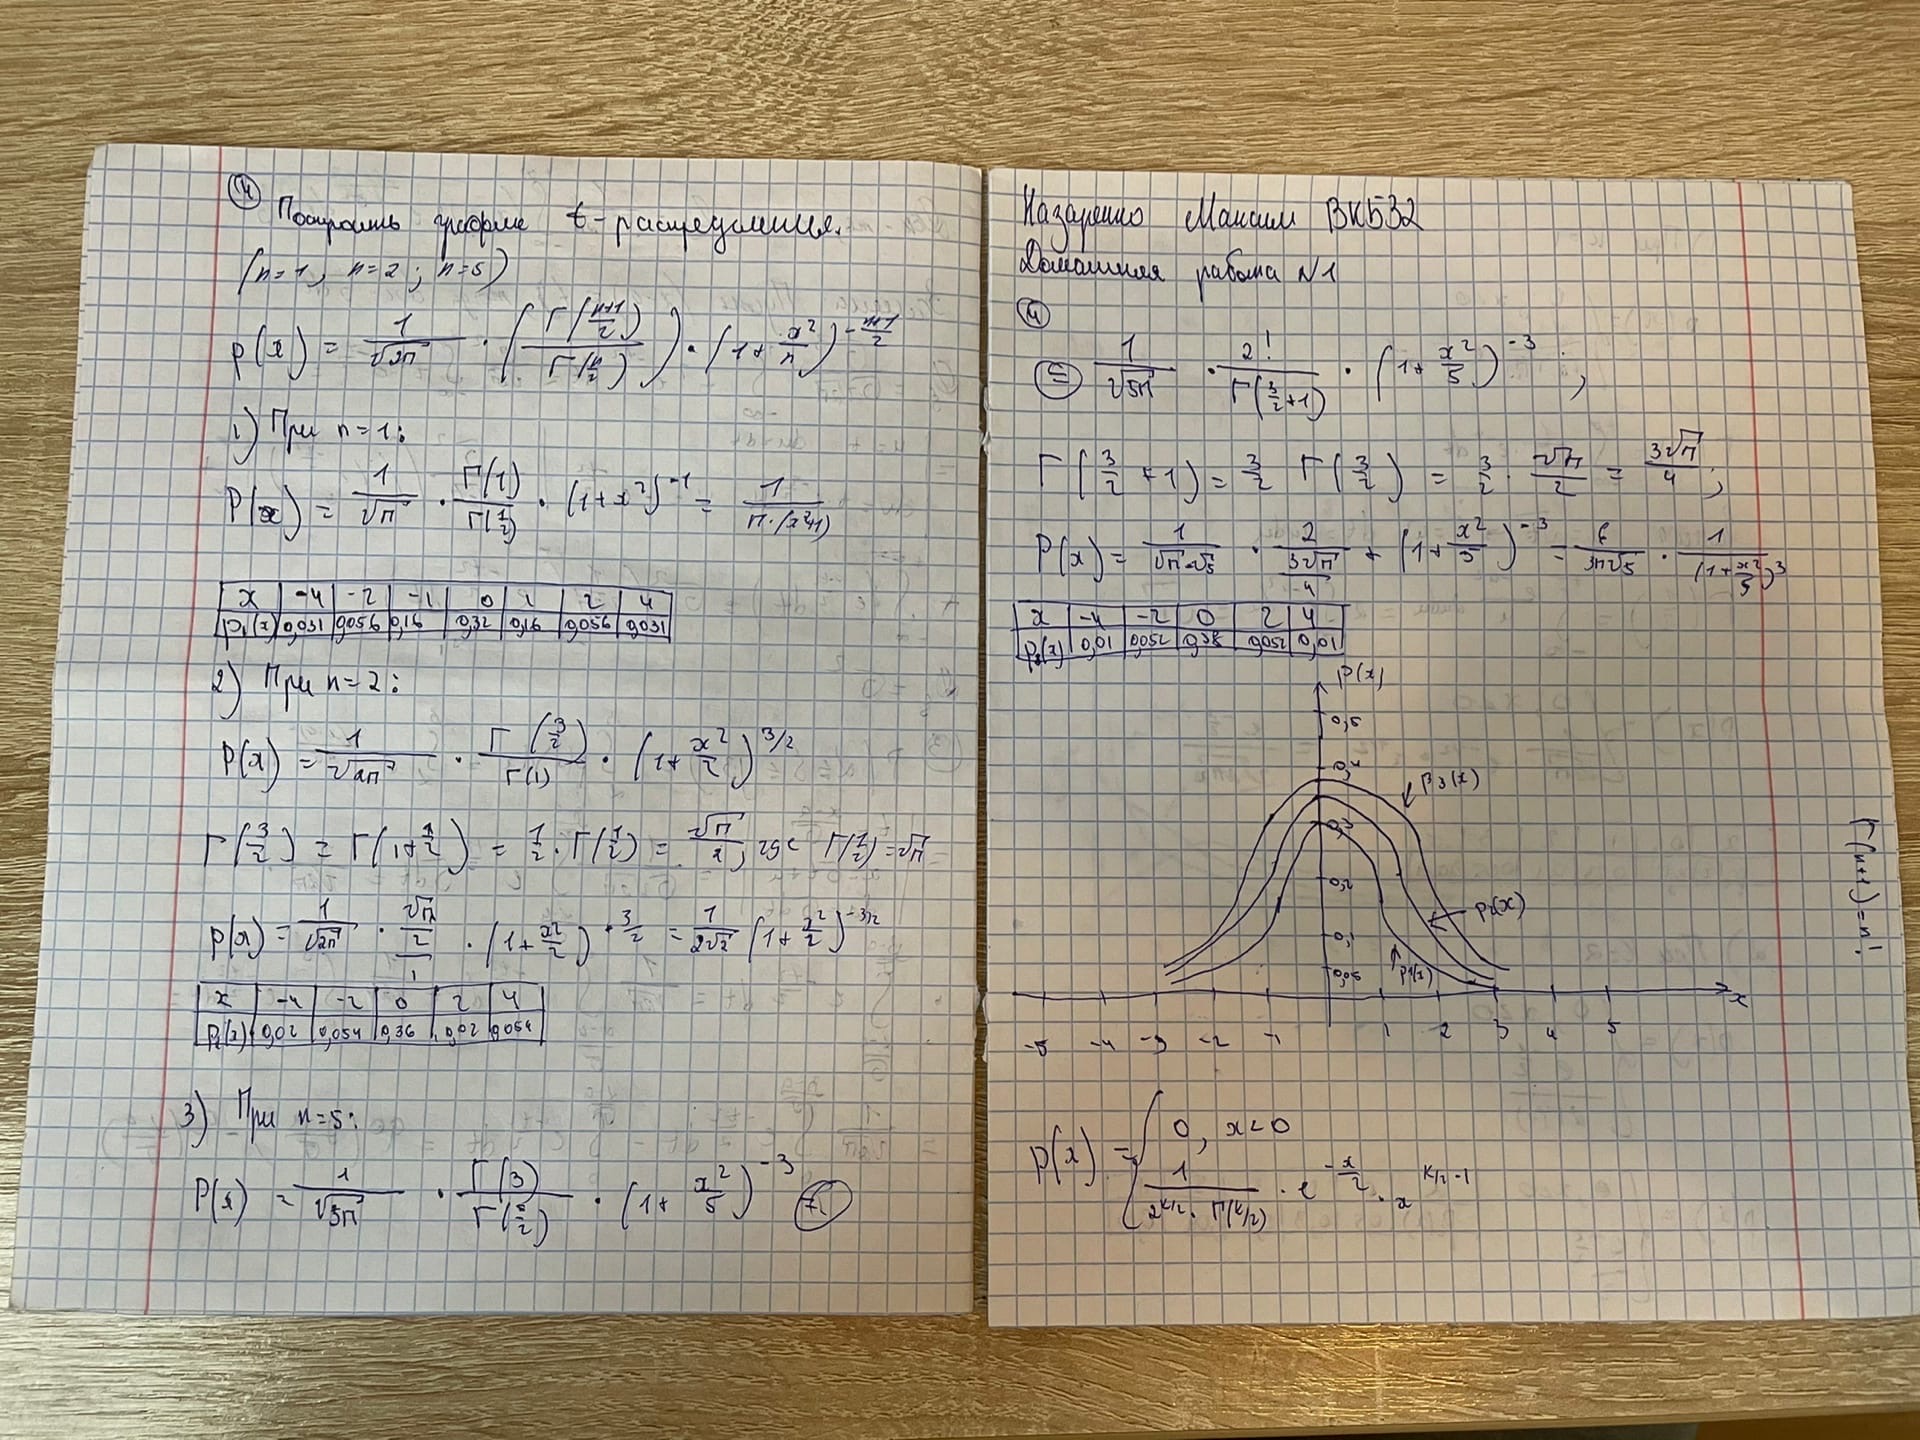 ④
Построить графики t-распределения.
(n=1, n=2; n=5)
p(x) = 1/√(πn) · (Γ((n+1)/2) / Γ(n/2)) · (1 + x²/n)^(-(n+1)/2)
1) При n=1:
P(x) = 1/√π · Γ(1)/Γ(1/2) · (1+x²)^(-1) = 1/(π·(x²+1))
x | -4 | -2 | -1 | 0 | 1 | 2 | 4
p₁(x) | 0,031 | 0,056 | 0,16 | 0,32 | 0,16 | 0,056 | 0,031
2) При n=2:
P(x) = 1/√(2π) · Γ(3/2)/Γ(1) · (1 + x²/2)^(3/2)
Γ(3/2) = Γ(1+1/2) = 1/2 · Γ(1/2) = √π/2, где Γ(1/2) = √π
p(x) = 1/√(2π) · (√π/2)/1 · (1 + x²/2)^(-3/2) = 1/(2√2) (1 + x²/2)^(-3/2)
x | -4 | -2 | 0 | 2 | 4
p₂(x) | 0,02 | 0,054 | 0,36 | 0,02 | 0,054
3) При n=5:
P(x) = 1/√(5π) · Γ(3)/Γ(5/2) · (1 + x²/5)^(-3) ⊜
Назаренко Максим ВКБ32
Домашняя работа №1
④
⊜ 1/√(5π) · 2!/Γ(3/2+1) · (1 + x²/5)^(-3);
Γ(3/2 + 1) = 3/2 Γ(3/2) = 3/2 · √π/2 = 3√π/4;
P(x) = 1/(√π·√5) · 2/(3√π/4) + (1 + x²/5)^(-3) = 6/(3π√5) · 1/(1 + x²/5)³
x | -4 | -2 | 0 | 2 | 4
p₃(x) | 0,01 | 0,052 | 0,38 | 0,052 | 0,01
p(x)
0,5
0,4
p3(x)
0,3
0,2
p2(x)
0,1
p1(x)
0,05
x
-5 -4 -3 -2 -1 1 2 3 4 5
Γ(n+1) = n!
p(x) = { 0, x<0
1/(2^(k/2) · Γ(k/2)) · e^(-x/2) · x^(k/2-1)